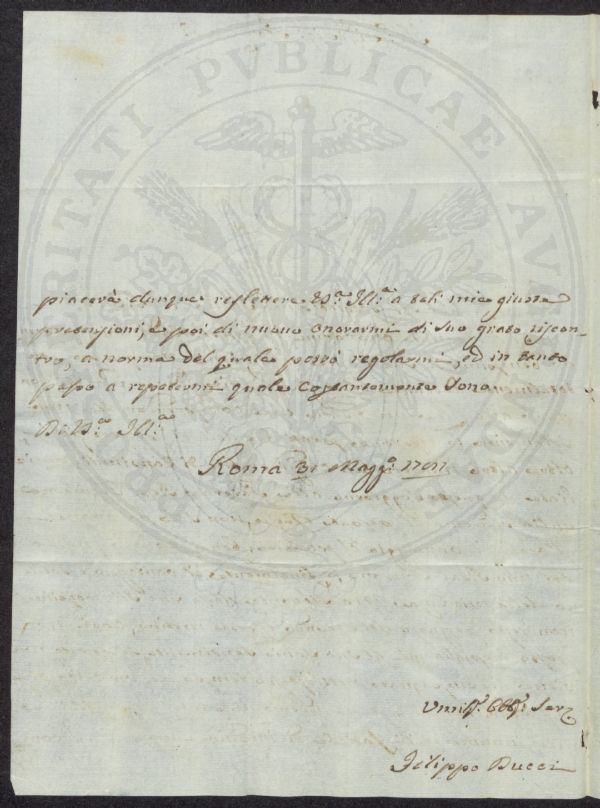 PROSPERITATI PVBLICAE AVGENDAE
piacerà dunque reflettere V.S. Ill.ma a tali mie giuste
pretenzioni, e poi di nuovo onorarmi di suo grato riscon-
tro, a norma del quale possa regolarmi, ed in tanto
passo a repetermi quale costantemente sono
Di V.S. Ill.ma
Roma 31 Magg.o
Umil.mo Obb.mo Ser.
Filippo Bucci